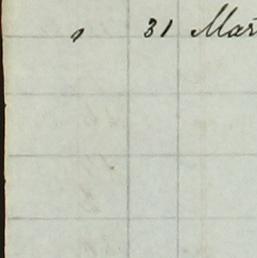 31 Mar